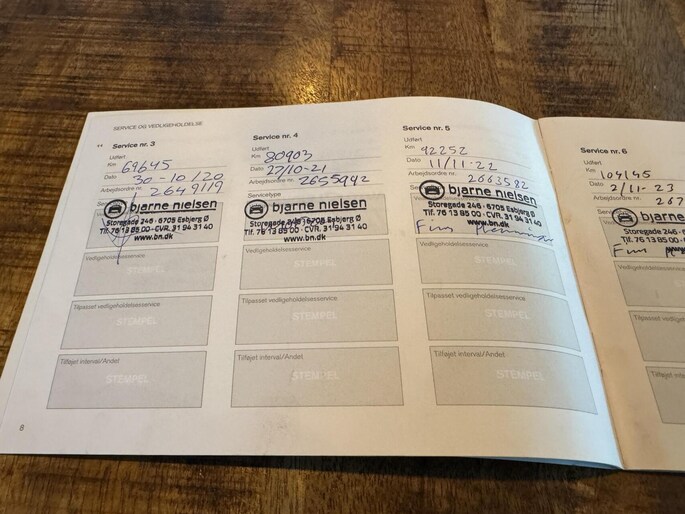 SERVICE OG VEDLIGEHOLDELSE
Service nr. 3
Udført
Km 69645
Dato 30-10/20
Arbejdsordre nr. 2649119
bjarne nielsen
Storegade 246 · 6705 Esbjerg Ø
Tlf. 76 13 85 00 · CVR. 31 94 31 40
www.bn.dk
Vedligeholdelsesservice
STEMPEL
Tilpasset vedligeholdelsesservice
STEMPEL
Tilføjet interval/Andet
STEMPEL
8
Service nr. 4
Udført
Km 80903
Dato 27/10-21
Arbejdsordre nr. 2655942
Servicetype
bjarne nielsen
Storegade 246 · 6705 Esbjerg Ø
Tlf. 76 13 85 00 · CVR. 31 94 31 40
www.bn.dk
Vedligeholdelsesservice
STEMPEL
Tilpasset vedligeholdelsesservice
STEMPEL
Tilføjet interval/Andet
STEMPEL
Service nr. 5
Udført
Km 92252
Dato 11/11-22
Arbejdsordre nr. 2663582
bjarne nielsen
Storegade 246 · 6705 Esbjerg Ø
Tlf. 76 13 85 00 · CVR. 31 94 31 40
www.bn.dk
Vedligeholdelsesservice
STEMPEL
Tilpasset vedligeholdelsesservice
STEMPEL
Tilføjet interval/Andet
STEMPEL
Service nr. 6
Udført
Km 104145
Dato 2/11-23
Arbejdsordre nr. 267
bjarne
Storegade 246 · 67
Tlf. 76 13 85 00 · CV
Vedligeholdelsesservice
Tilpasset vedligeh
Tilføjet interva